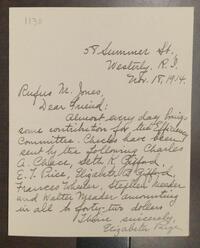 1130
58 Summer St.
Westerly, R.I.
Nov. 18, 1914.
Rufus M. Jones,
Dear Friend:
Almost every day brings
some contribution for the Efficiency
Committee. Checks have been
sent by the following Charles
A. Chace, Seth K. Gifford,
E. T. Rice, Elizabeth B. Gifford,
Frances Wheeler, Stephen Meader
and Walter Meader amounting
in all to forty-two dollars
Thine sincerely,
Elizabeth Paige